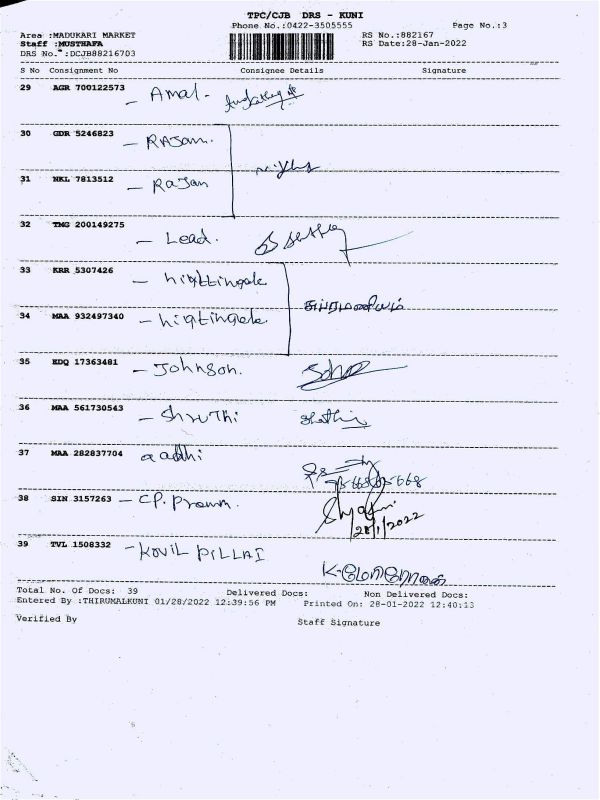 TPC/CJB DRS - KUNI
Phone No.:0422-3505555 Page No.:3
Area :MADUKARI MARKET RS No.:882167
Staff :MUSTHAFA RS Date:28-Jan-2022
DRS No. :DCJB88216703
S No Consignment No Consignee Details Signature
29 AGR 700122573
- Amal -
30 GDR 5246823
- RAJan.
31 NKL 7813512
- RaJan
32 TMG 200149275
- Lead.
33 KRR 5307426
- nigttingale
சுப்ரமணியம்
34 MAA 932497340
- nigtingale
35 EDQ 17363481
- Johnson.
36 MAA 561730543
- ShruThi
37 MAA 282837704 aadhi
38 SIN 3157263 - CP.
28/1/2022
39 TVL 1508332 - KOVIL PILLAI
Total No. Of Docs: 39 Delivered Docs: Non Delivered Docs:
Entered By :THIRUMALKUNI 01/28/2022 12:39:56 PM Printed On: 28-01-2022 12:40:13
Verified By Staff Signature